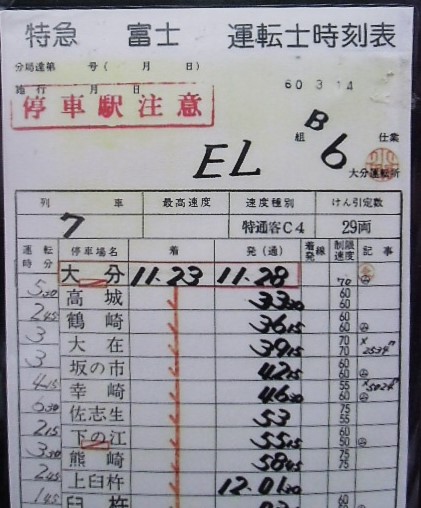 特急 富士 運転士時刻表
分局達第 号( 月 日)
施行 月 日
60 3 14
停車駅注意
組 B 6 仕業
EL
大分運転所
列 車 最高速度 速度種別 けん引定数
7 特通客C4 29両
運転時分 停車場名 着 発(通) 着発線 制限速度 記事
大分 11.23 11.28 70
5 30 高城 33 30 60 60
2 45 鶴崎 36 15 60 60
3 大在 39 15 70 70
3 坂の市 42 15 60 60
4 15 幸崎 46 30 55 60
6 30 佐志生 53 75 55
2 15 下の江 55 15 60 50
3 30 熊崎 58 45 75 75
2 45 上臼杵 12.01 30
1 45 臼杵 60